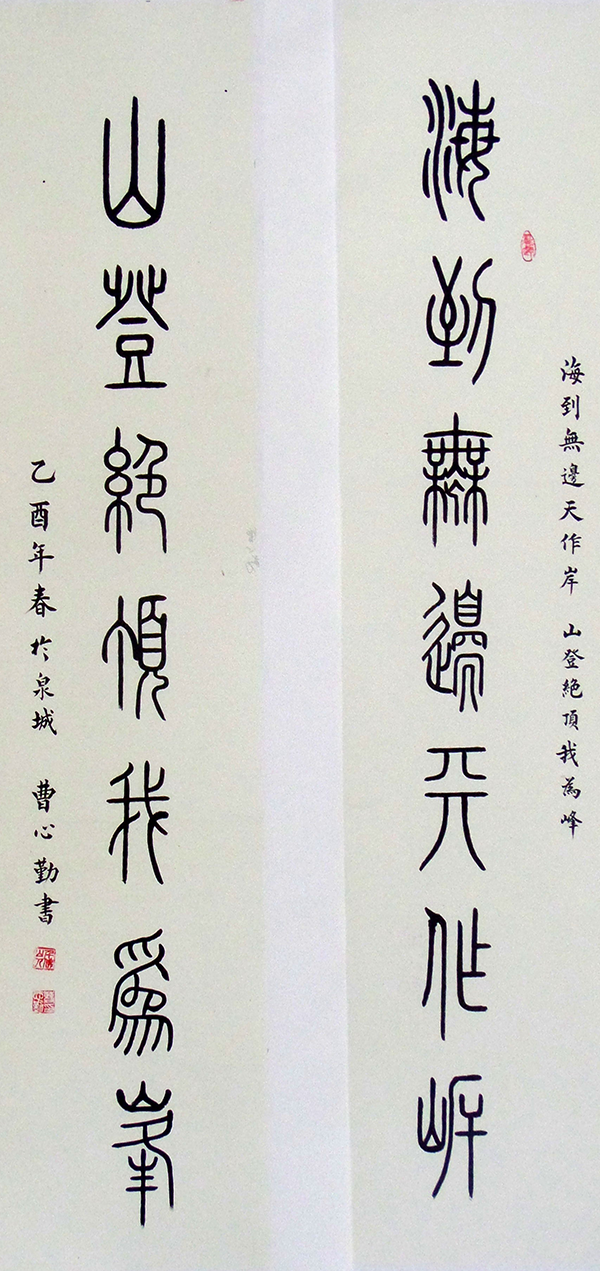 海到無邊天作岸 山登絕頂我為峰
海到無邊天作岸
山登絕頂我為峰
乙酉年春於泉城 曹心勤書